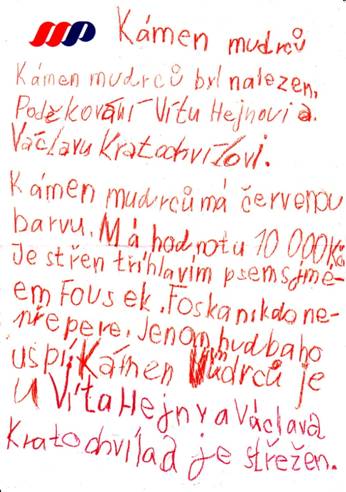 Kámen mudrců
Kámen mudrců byl nalezen,
Poděkování Vítu Hejnovi a
Václavu Kratochvílovi.
Kámen mudrců má červenou
barvu. Má hodnotu 10 000 Kč
Je střen tříhlavím psem s jmé-
em Fousek. Foska nikdo ne-
přepere. Jenom hudba ho
uspí. Kámen Mudrců je
u Víta Hejny a Václava
Kratochvílad je střežen.